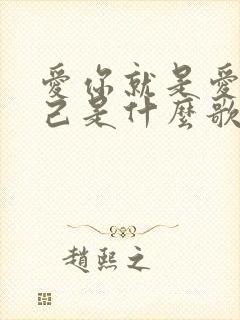 愛你就是愛
己是什麼歌
趙熙之